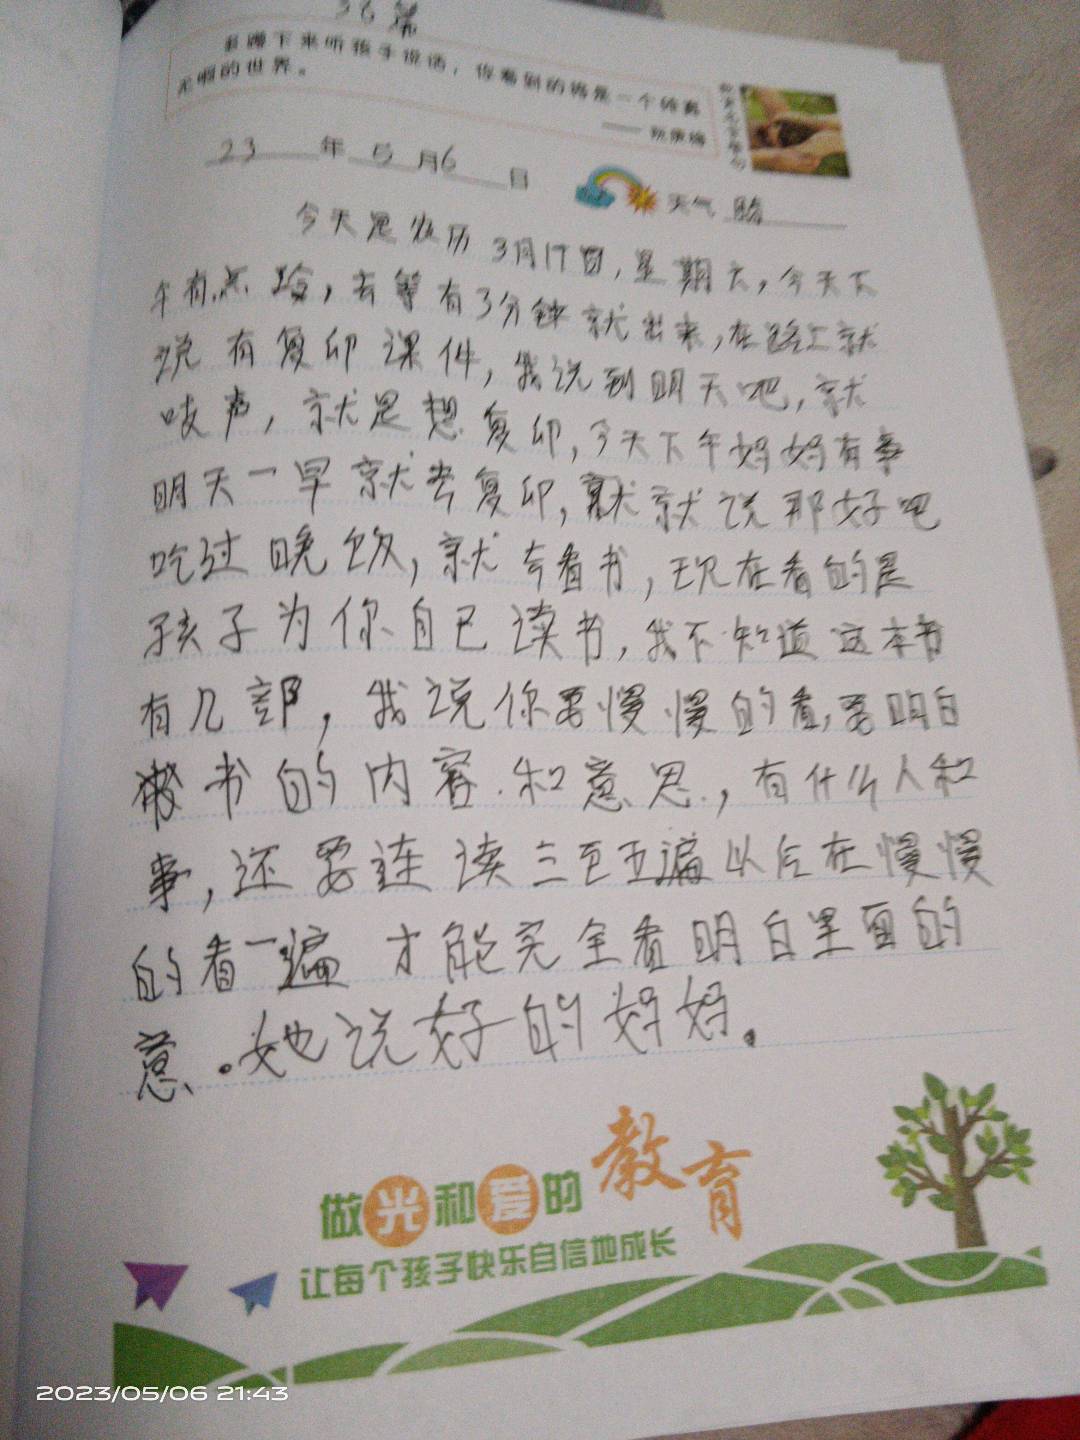 36篇
蹲下来听孩子说话，你看到的将是一个纯真
无暇的世界。
—— 阮庚梅
23年5月6日 天气 阴
今天是农历3月17日，星期六，今天下
午有点 ，去等有3分钟就出来，在路上就
说有复印课件，我说到明天吧，就
吱声，就是想复印，今天下午妈妈有事
明天一早就去复印，就就说那好吧
吃过晚饮，就去看书，现在看的是
孩子为你自己读书，我不知道这本书
有几部，我说你要慢慢的看，要明白
书的内容和意思，有什么人和
事，还要连读三至五遍以后在慢慢
的看一遍 才能完全看明白里面的
意。她说好的妈妈。
做光和爱的教育
让每个孩子快乐自信地成长
2023/05/06 21:43